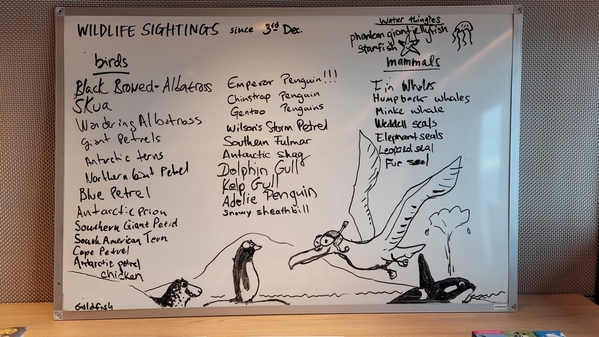 WILDLIFE SIGHTINGS since 3rd Dec.
birds
Black Browed-Albatross
Skua
Wandering Albatross
giant Petrels
Antarctic terns
Northern Giant Petrel
Blue Petrel
Antarctic prion
Southern Giant Petrel
South American Tern
Cape Petrel
Antarctic petrel
chicken
Goldfish
Emperor Penguin!!!
Chinstrap Penguin
Gentoo Penguins
Wilson's Storm Petrel
Southern Fulmar
Antarctic shag
Dolphin Gull
Kelp Gull
Adelie Penguin
snowy sheathbill
Water thingies
phantom giant jellyfish
starfish
mammals
Fin Whales
Humpback whales
Minke whale
Weddell seals
Elephant seals
Leopard seal
Fur seal